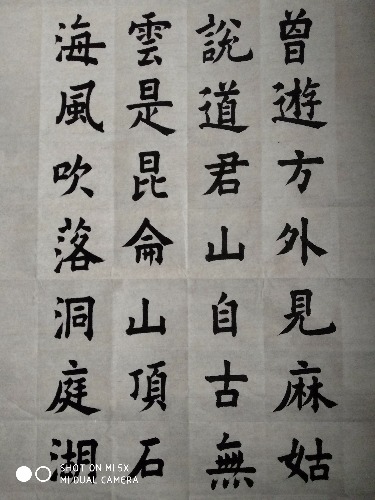 曾遊方外見麻姑
說道君山自古無
雲是昆侖山頂石
海風吹落洞庭湖
SHOT ON MI 5X
MI DUAL CAMERA